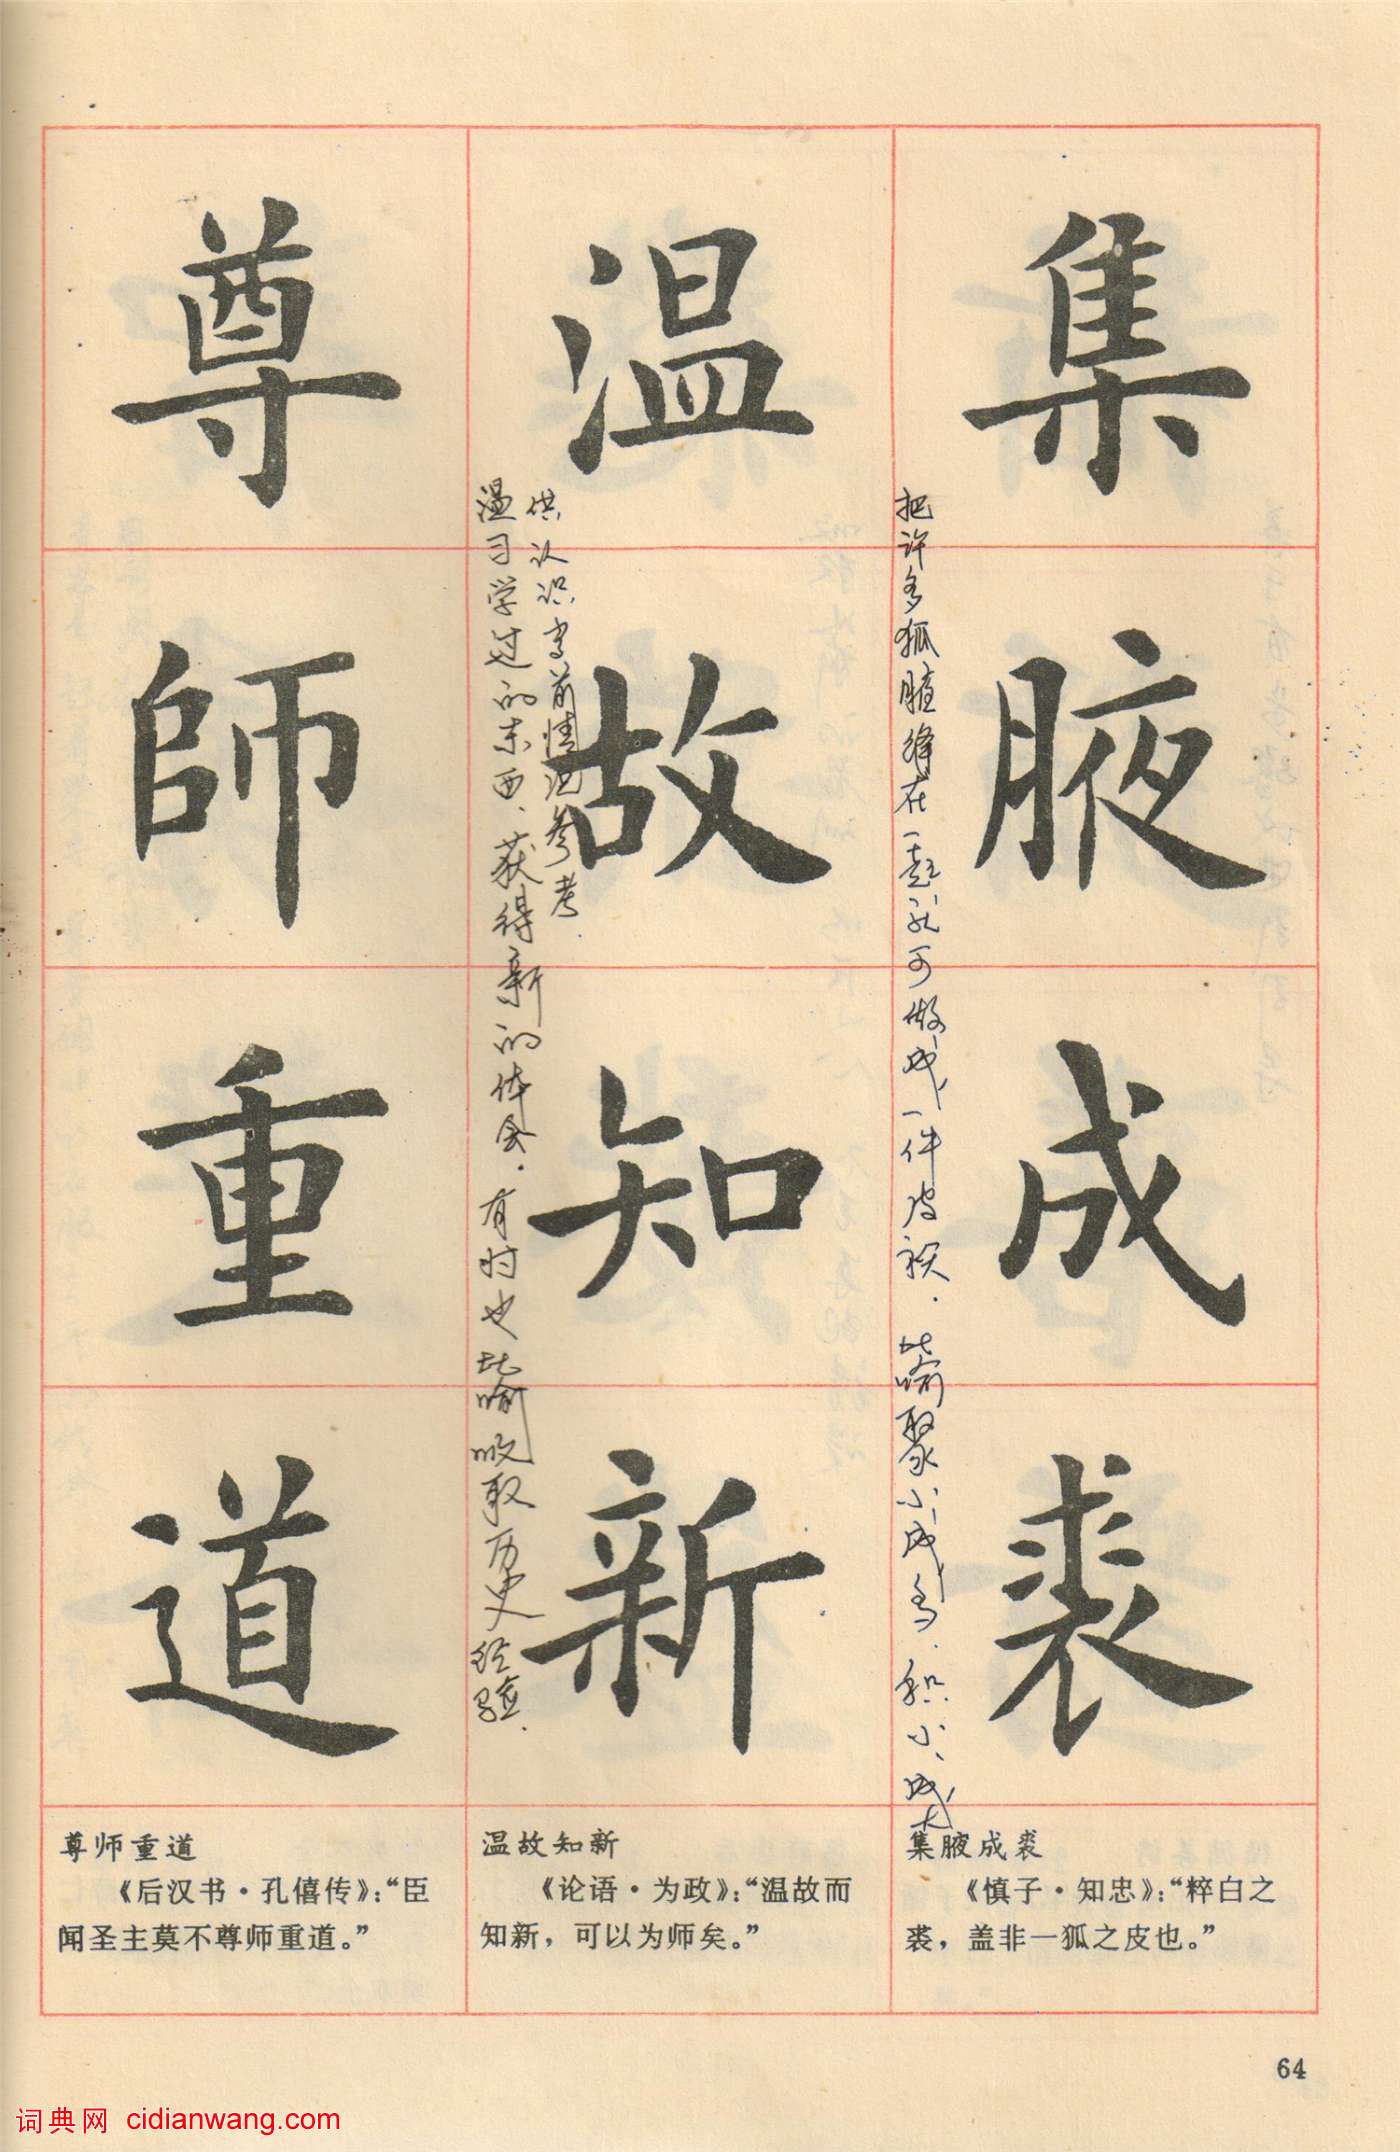 集腋成裘
把许多狐腋缝在一起就可做成一件皮袄.比喻聚小成多.积小成大
温故知新
温习学过的东西.获得新的体会.有时也比喻吸取历史经验.
供认识当前情况参考
尊師重道
集腋成裘
《慎子·知忠》：“粹白之
裘，盖非一狐之皮也。”
温故知新
《论语·为政》：“温故而
知新，可以为师矣。”
尊师重道
《后汉书·孔僖传》：“臣
闻圣主莫不尊师重道。”
64
词典网 cidianwang.com